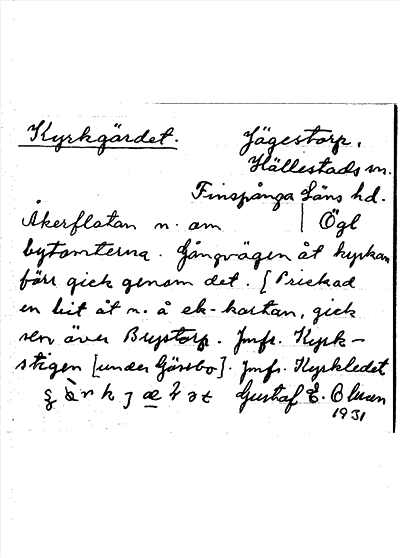 Kyrkgärdet. Jägestorp,
Hällestads sn.
Finspånga läns hd.
Åkerflatan n. om | Ögl
bytomterna. Gångvägen åt kyrkan
förr gick genom det. [Prickad
en bit åt n. å ek-kartan, gick
sen över Brystorp. Jmfr. Kyrk-
stigen [under Görsbo]. Jmfr. Kyrkledet
Gustaf E. Olsson
1931